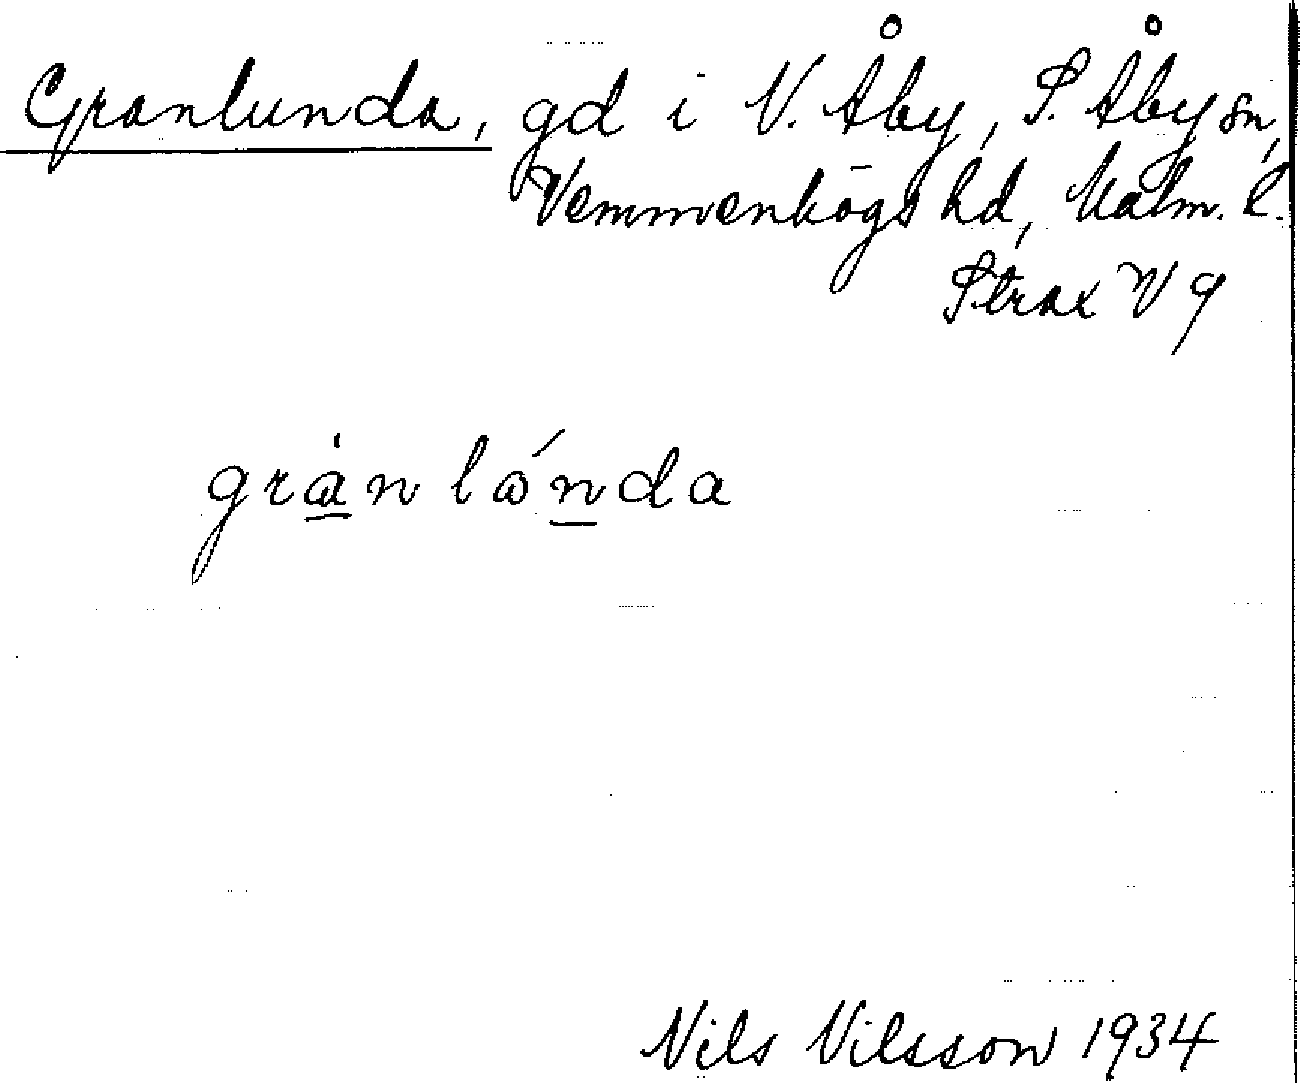 Granlunda, gd i V. Åby, S. Åby sn,
Vemmenhögs hd, Malm. l.
Strax V 9
granlónda
Nils Nilsson 1934